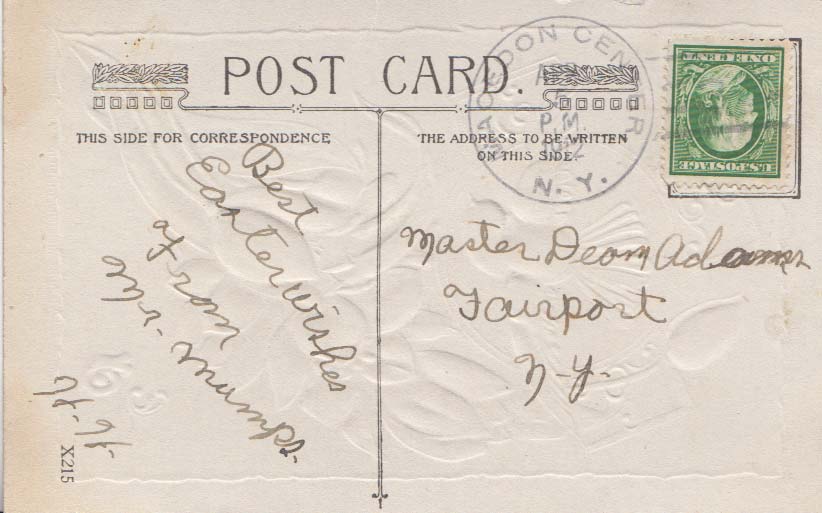 POST CARD.
THIS SIDE FOR CORRESPONDENCE
THE ADDRESS TO BE WRITTEN
ON THIS SIDE.
MACEDON CENTER
P.M.
N. Y.
ONE CENT
U.S. POSTAGE
Best
Easter wishes
From
Master Adams
Fairport
N-Y-
X215